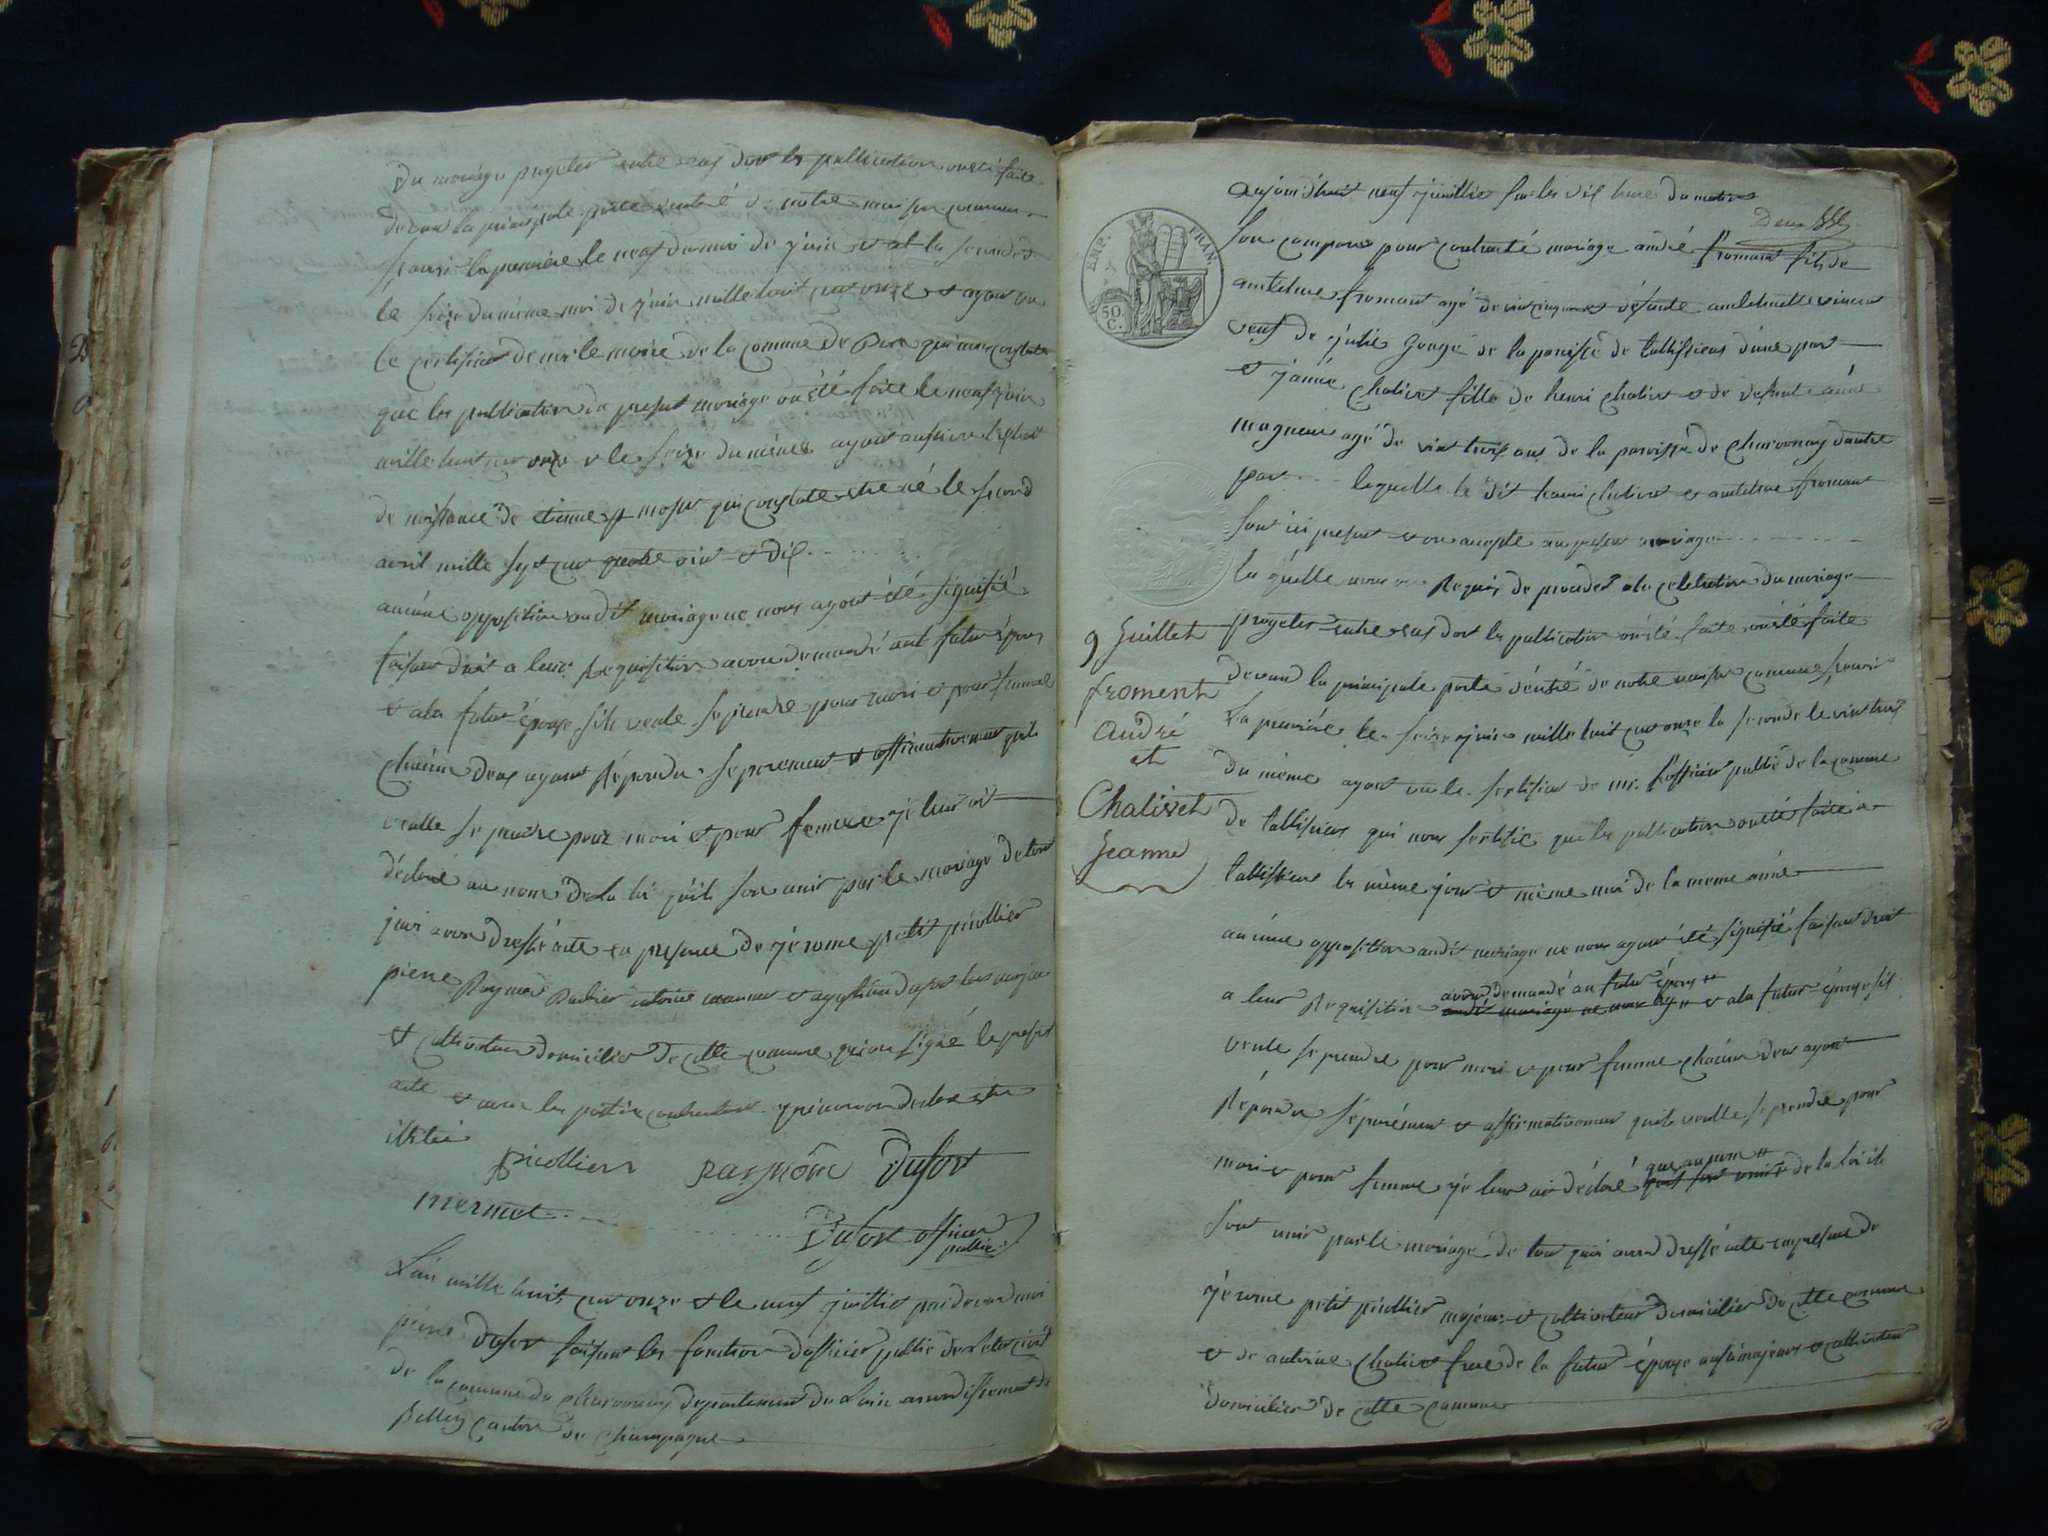 du mariage projeter entre eux dont les publication ont été faite
devant la principale porte d'entré de notre maison commune
scavoir la première le neuf du moi de juin et la seconde
le seize du même moi de juin mille huit cent onze et ayant vu
le certificat de mr le maire de la commune de qui nous constate
que les publication du present mariage on été faite le neuf juin
mille huit cent onze et le seize du même ayant aussi vu l'extrait
de naissance de etienne mosur qui constate etre né le second
avril mille sept cent quatre vint et dix
aucune opposition audit mariage ne nous ayant été signifié
faisant droit a leur requisition avons demandé aut futur époux
et a la futur épouse sils veule se prendre pour mari et pour femme
chacun deux ayant répondu separement et affirmativement quils
veulle se prendre pour mari et pour femme je leur ai
déclaré au nom de la loi quils son unir par le mariage de tout
quoi avons dressé acte en presence de jérome petit picollier
pierre Reymond antoine mermet et dufour tous majeur
et cultivateur domicilier de cette commune qui on signé le present
acte et avec les partie contractant on declaré etre
illitré
picollier raymôn Dufour
mermet
Dufour officier
public
L'an mille huit cent onze et le neuf juillet pardevant moi
pierre dufour faisant les fonction d'officier public de l'etat civil
de la commune de charvornay departement de Lain arrondissement de
Belley canton de Champagne
EMP. FRAN.
50
C.
aujourd'huit neuf juillet sur les dix heure du matin
Deux
son comparu pour contracté mariage andré fromant fils de
antelme fromant agé de vint cinq ans et défunte antelmette
veuf de julie de la paroisse de tallissieux d'une part
et janne chalivet fille de henri chalivet et de defunte
agé de vint trois ans de la paroisse de charvornay dautre
part laquelle le dit henri chalivet et antelme fromant
sont ici present et on accepte au present mariage
la quelle nous on requis de proceder a la celebration du mariage
projeter entre eux dont les publication ont été faite ont été faite
devand la principale porte d'entré de notre maison commune scavoir
La premiére le seize juin mille huit cent onze la seconde le vint trois
du même ayant vu le sertificat de mr l'officier public de la commune
de tallissieux qui nous sertifie que les publication ont été faite a
tallissieux les même jour et même moi de la meme anné
aucune opposition audit mariage ne nous ayant été signifié faisant droit
avons demandé au futur époux
a leur requisition audit mariage ne nous ay et a la futur épouse sil
veule se prendre pour mari et pour femme chacun deux ayant
répondu séparément et affirmativement quils veulle se prendre pour
que au nom
mari et pour femme je leur ai déclaré quils son unir de la loi ils
sont unir par le mariage de tout quoi avons dressé acte en presence de
jérome petit picollier majeur et cultivateur domicilier de cette commune
et de antoine chalivet frere de la futur épouse aussi majeur et cultivateur
domicilier de cette commune
9 Juillet
froment
André
et
Chalivet
Jeanne